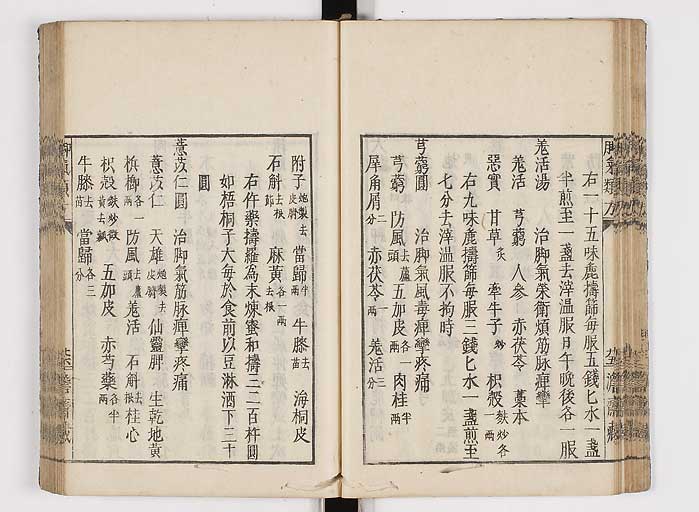 右一十五味麄擣篩毎服五錢匕水一盞
半煎至一盞去滓温服日午晚後各一服
羗活湯 治脚氣榮衛煩筋脉痺攣
羗活 芎藭 人參 赤茯苓 藁本
惡實 甘草炙 牽牛子炒 枳殼麩炒各一兩
右九味麄擣篩毎服三錢匕水一盞煎至
七分去滓温服不拘時
芎藭圓 治脚氣風毒痺攣疼痛
芎藭 防風去蘆頭 五加皮各一兩 肉桂半兩
犀角屑二分 赤茯苓一兩 羗活三分
附子炮製去皮臍 當歸半兩 牛膝去苗 海桐皮
石斛去根節 麻黄去根各一兩
右件藥擣羅為末煉蜜和擣三二百杵圓
如梧桐子大毎於食前以豆淋酒下三十
圓
薏苡仁圓 治脚氣筋脉痺攣疼痛
薏苡仁 天雄炮製去皮臍 仙靈脾 生乾地黄
檳榔各一兩 防風去蘆頭 羗活 石斛去根 桂心
枳殼麩炒微黄去瓤 五加皮 赤芍藥各半兩
牛膝去苗 當歸各三分